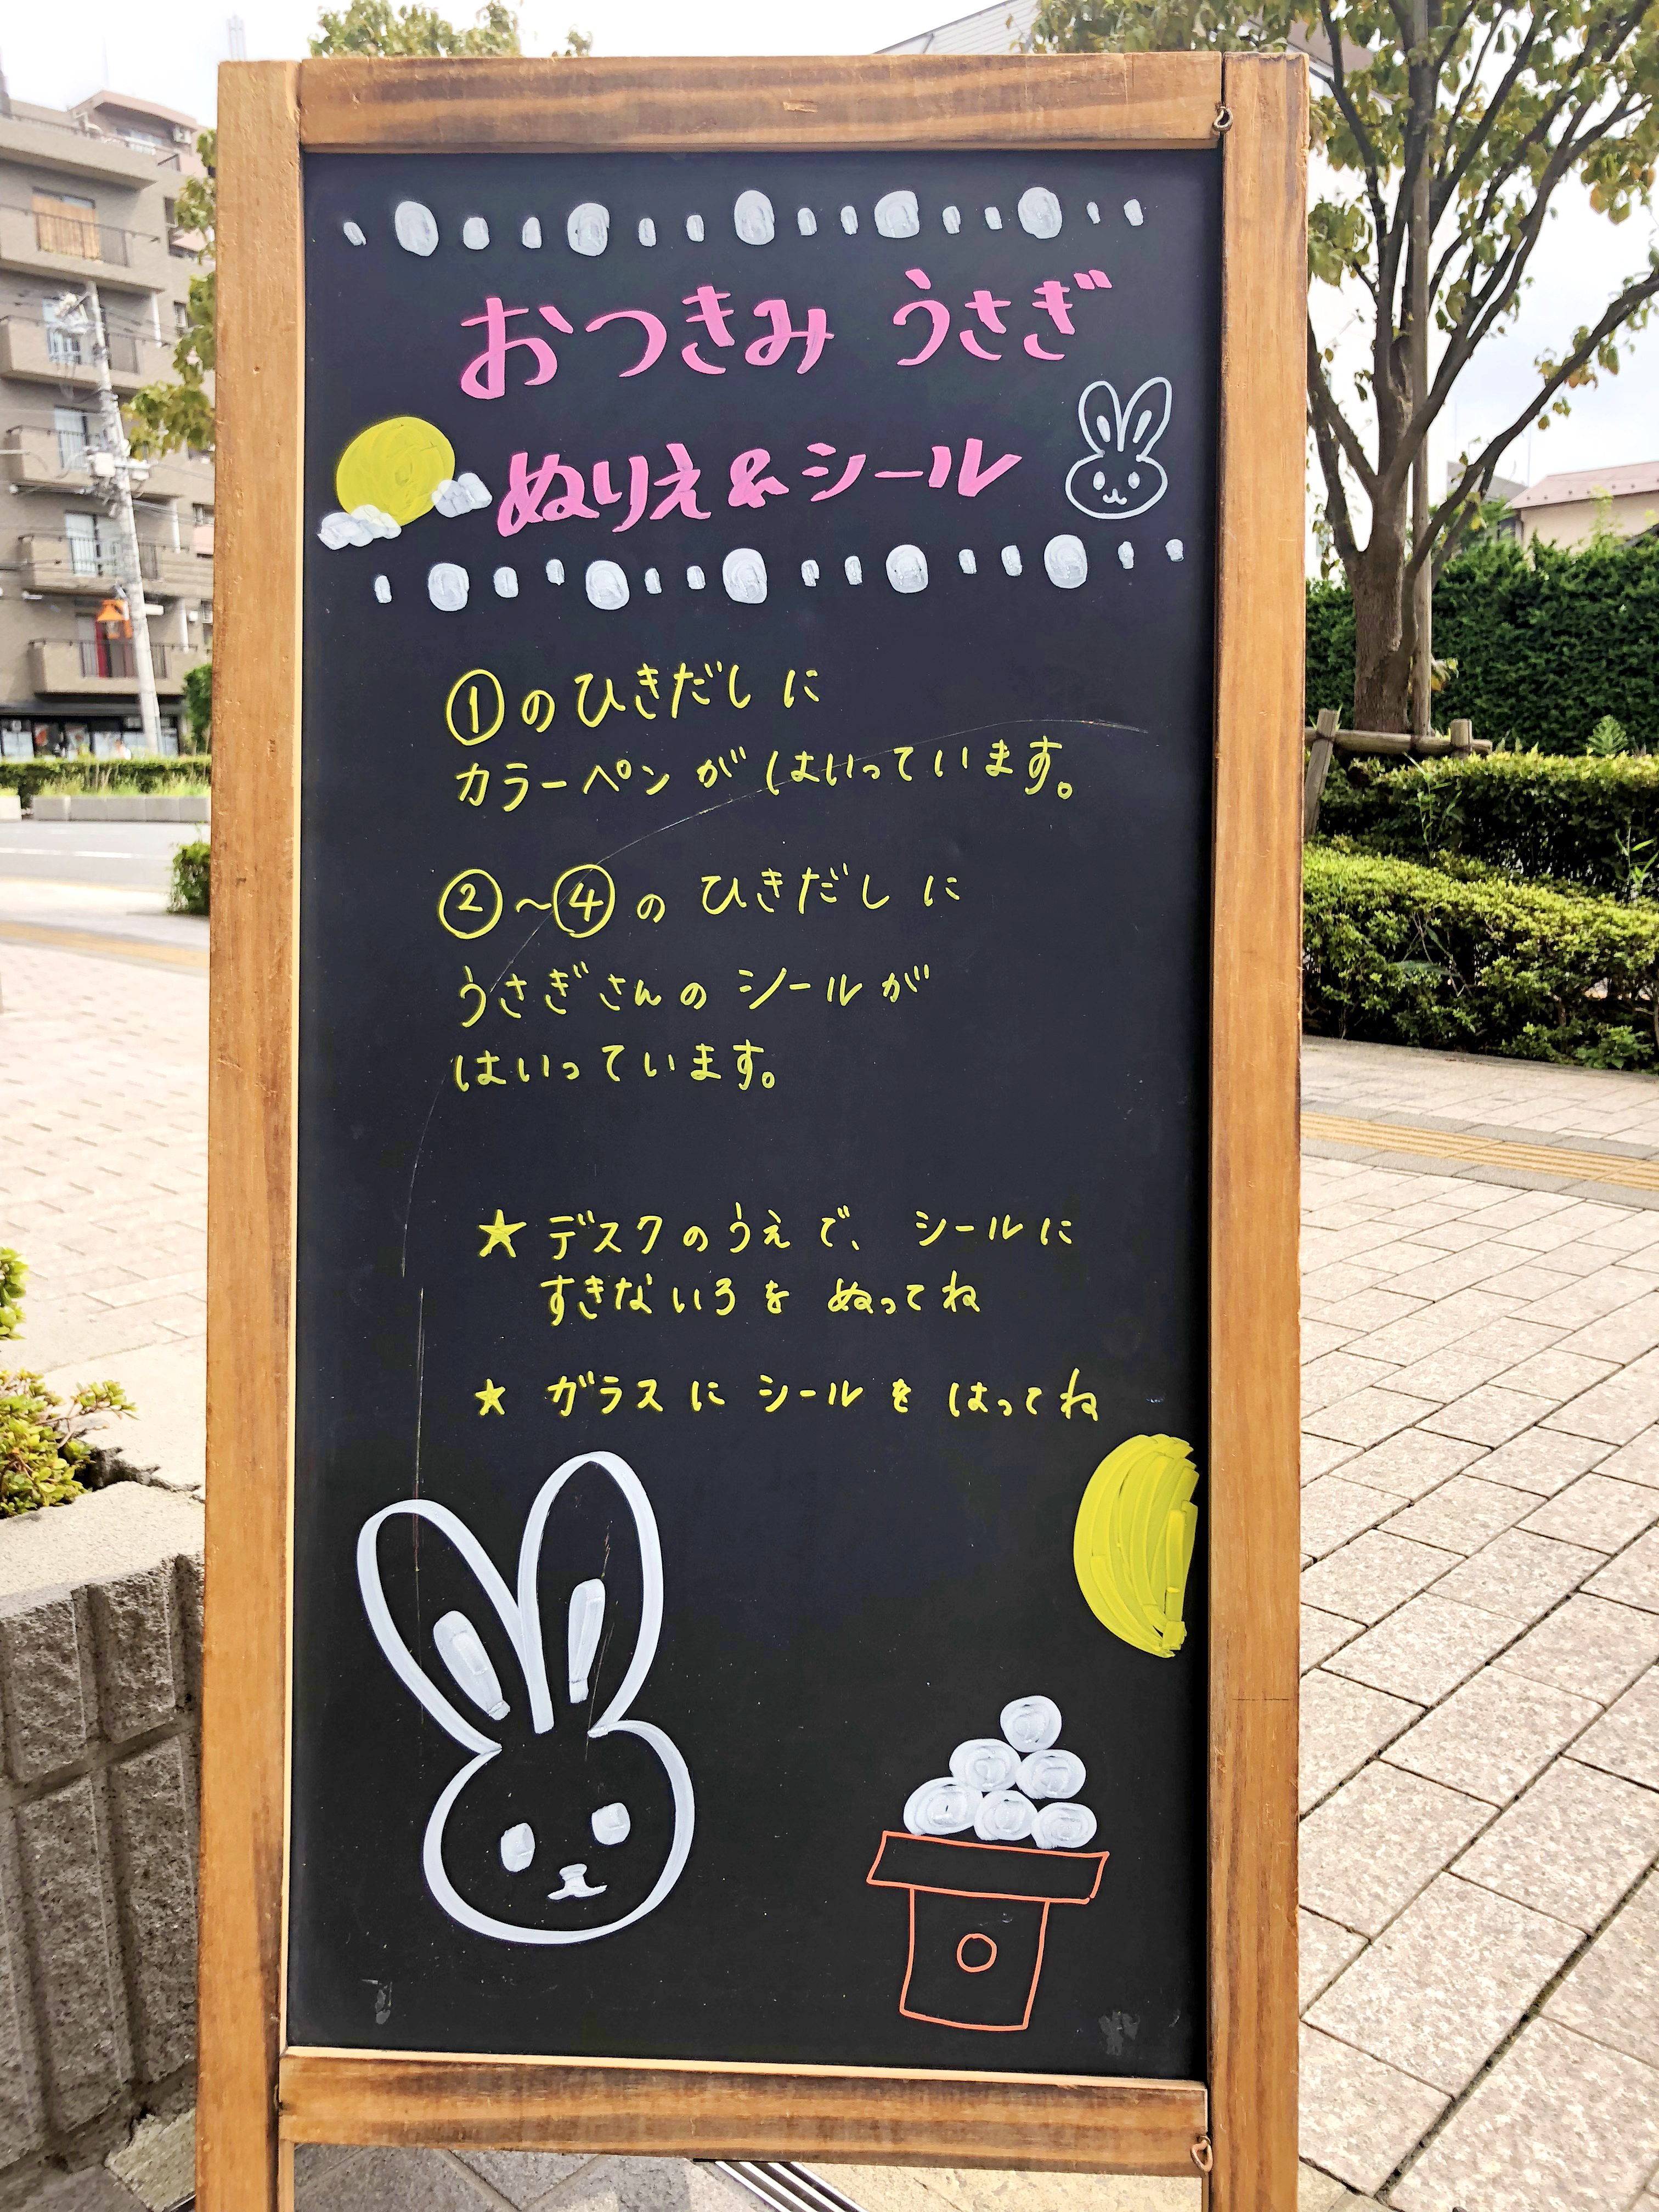 おつきみ うさぎ
ぬりえ&シール
①のひきだしに
カラーペンがはいっています。
②〜④のひきだしに
うさぎさんのシールが
はいっています。
★デスクのうえで、シールに
すきないろをぬってね
★ガラスにシールをはってね